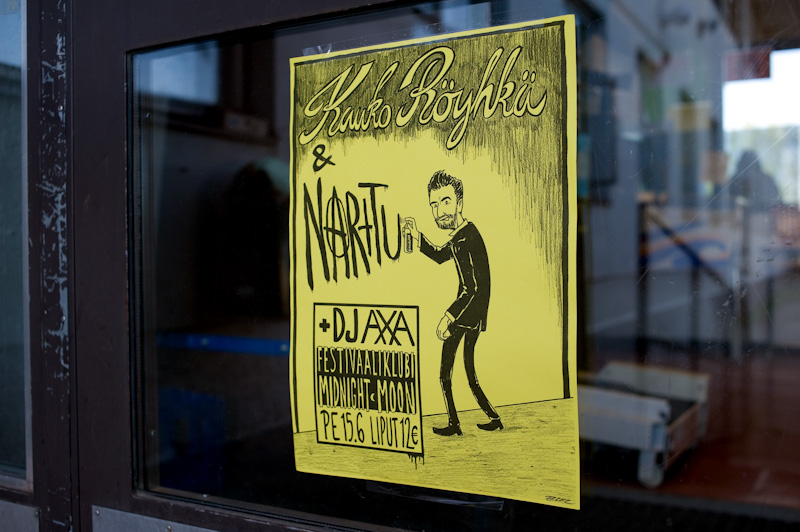 Kauko Röyhkä
&
NARTTU
+ DJ AXA
FESTIVAALIKLUBI
MIDNIGHT MOON
PE 15.6 LIPUT 12€